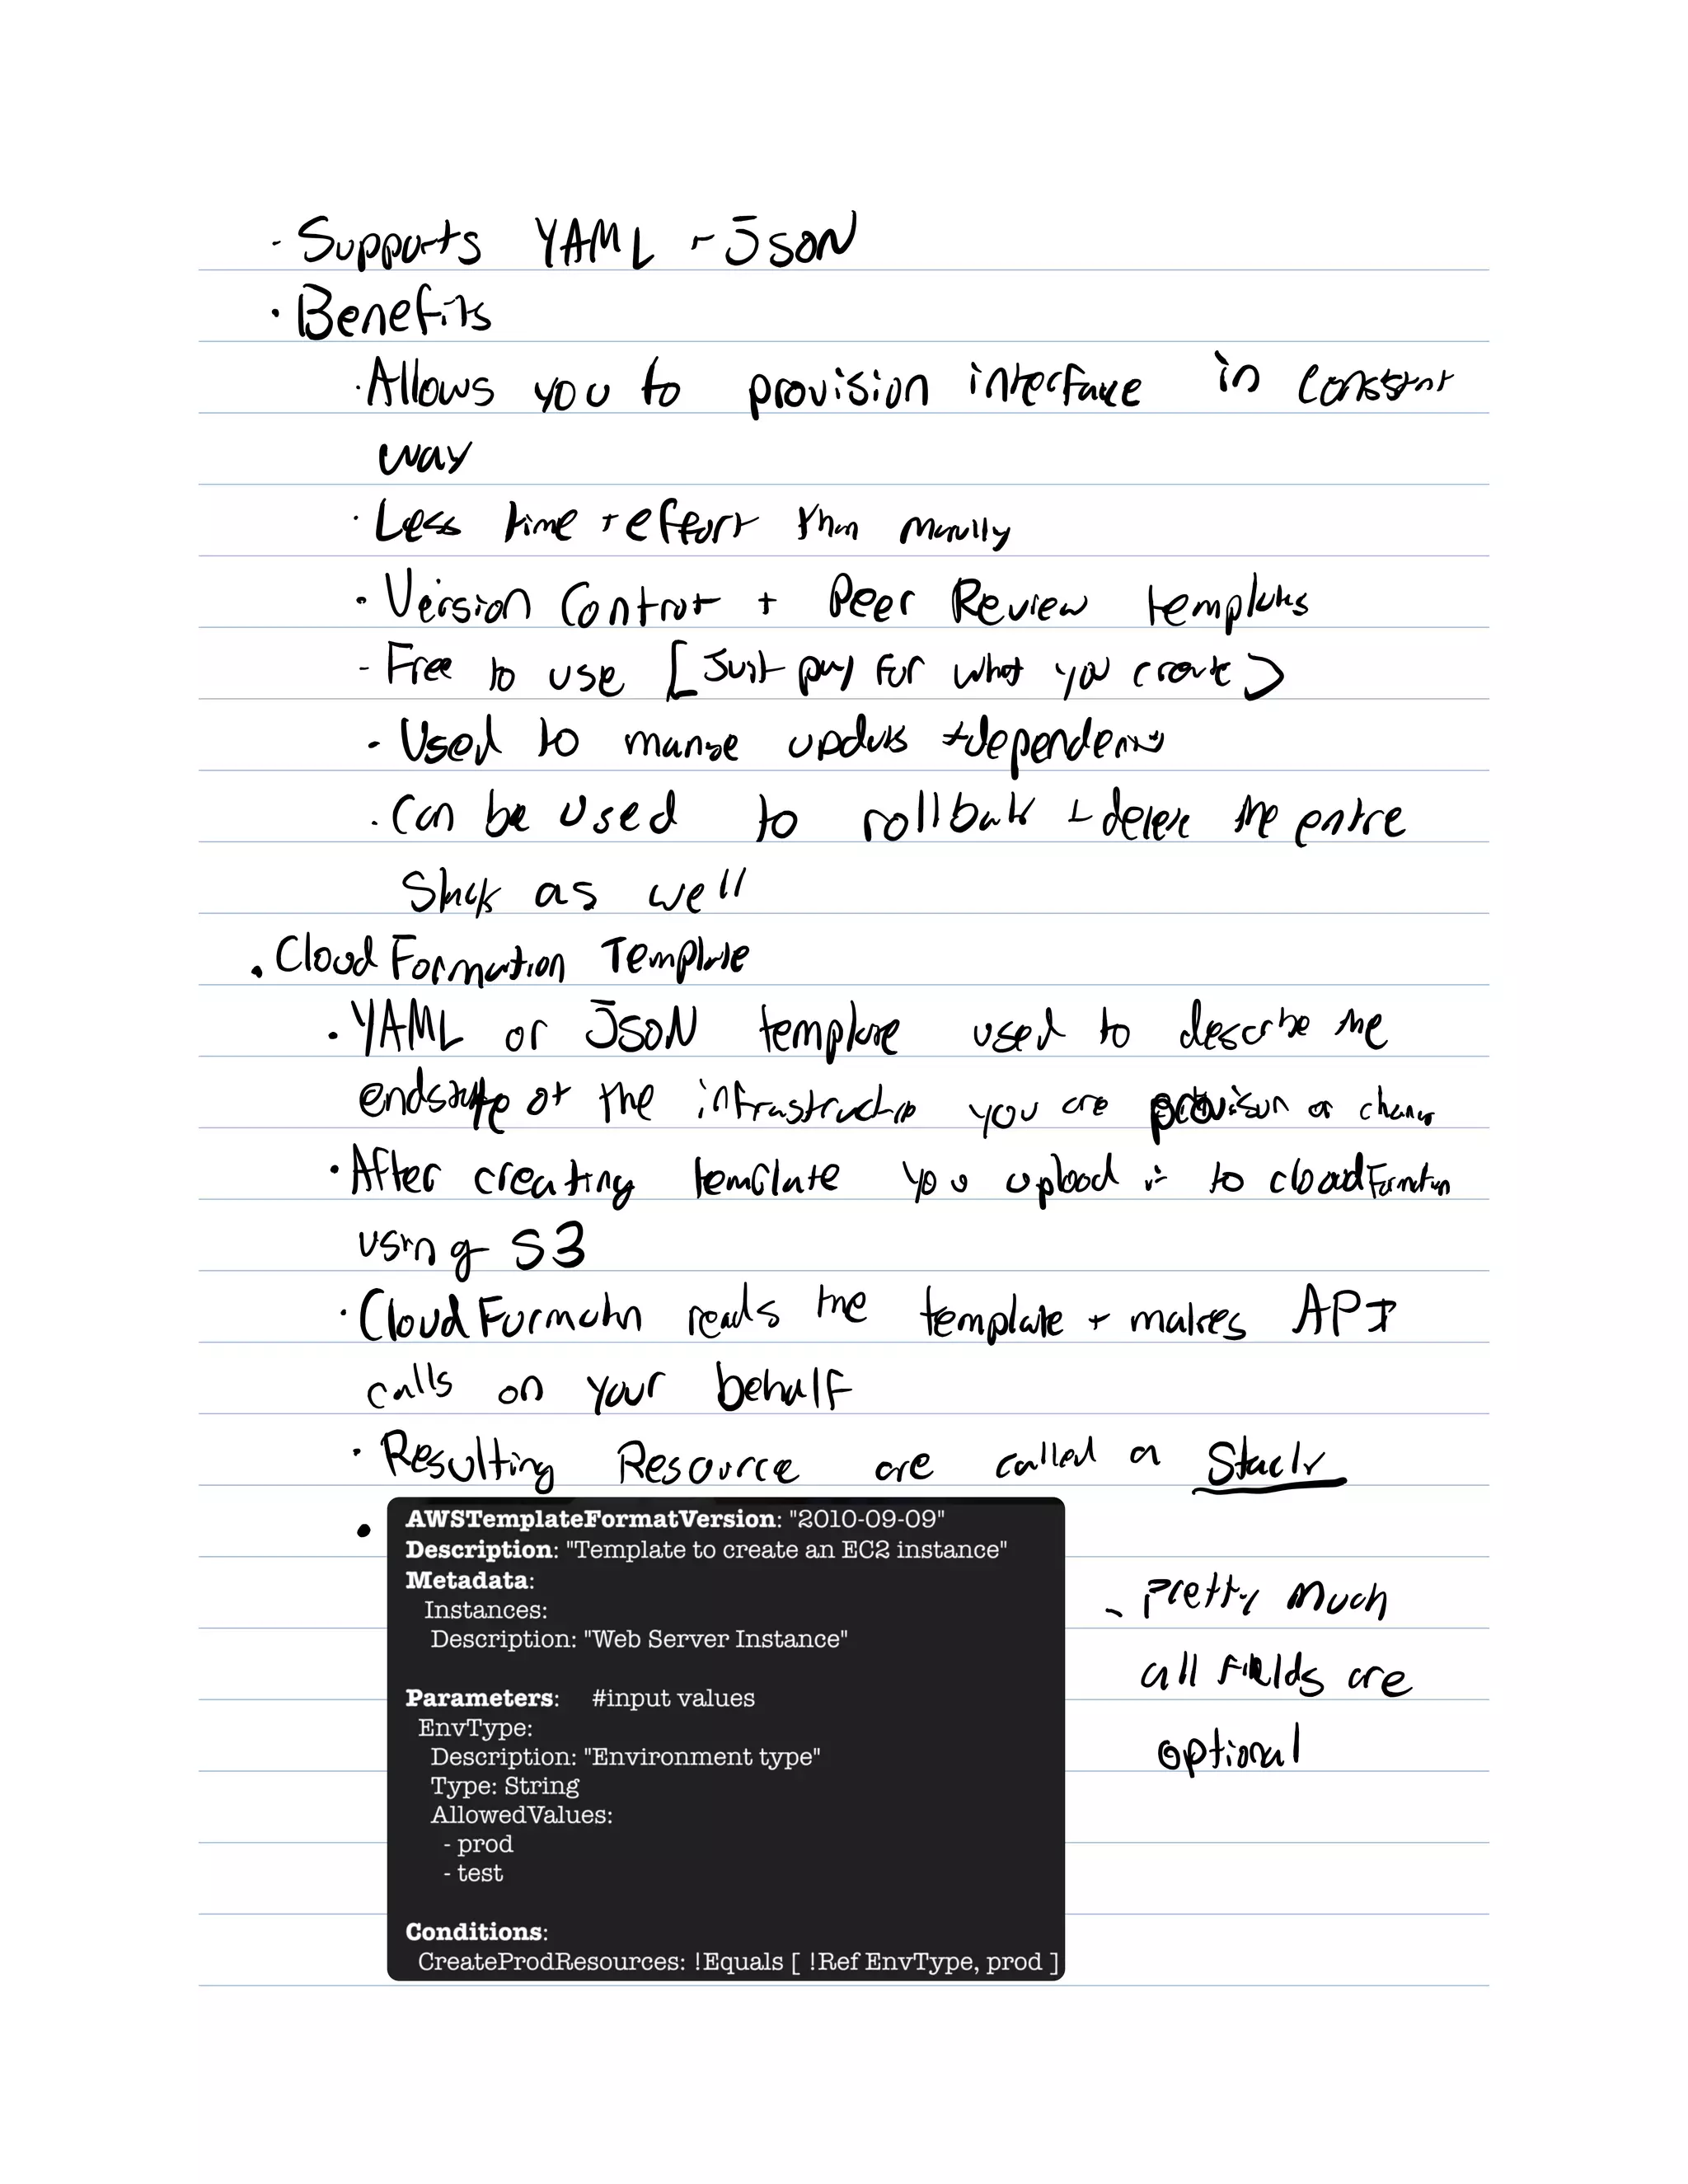 - Supports YAML + JSON
· Benefits
· Allows you to provision interface in consistent
way
· Less time + effort than manully
· Version Control + Peer Review templates
- Free to use [Just pay for what you create]
- Used to manage updates + dependencies
· Can be used to rollback + delete the entire
Stack as well
· CloudFormation Template
· YAML or JSON template used to describe the
endstate of the infrastructure you are provision or change
· After creating template you upload it to cloudFormation
using S3
· CloudFormation reads the template + makes API
calls on your behalf
· Resulting Resource are called a Stack
· AWSTemplateFormatVersion: "2010-09-09"
Description: "Template to create an EC2 instance"
Metadata:
Instances:
Description: "Web Server Instance"
Parameters: #input values
EnvType:
Description: "Environment type"
Type: String
AllowedValues:
- prod
- test
Conditions:
CreateProdResources: !Equals [ !Ref EnvType, prod ]
- Pretty much
all fields are
optional